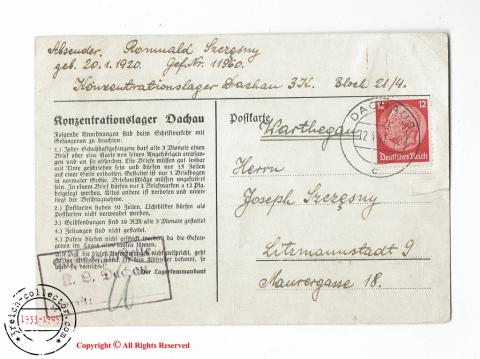 Absender. Romuald Szczęsny
geb. 20.1.1920. Gef. Nr. 11960.
Konzentrationslager Dachau 3K. Block 21/4.
Konzentrationslager Dachau
Folgende Anordnungen sind beim Schriftverkehr mit
Gefangenen zu beachten:
1.) Jeder Schutzhaftgefangene darf alle 3 Monate einen
Brief oder eine Karte von seinen Angehörigen empfan-
gen und an sie absenden. Die Briefe müssen gut lesbar
mit Tinte geschrieben sein und dürfen nur 15 Zeilen
auf einer Seite enthalten. Gestattet ist nur 1 Briefbogen
in normaler Größe. Briefumschläge müssen ungefüttert
sein. In einem Brief dürfen nur 2 Briefmarken a 12 Pfg.
beigelegt werden. Alles andere ist verboten und unter-
liegt der Beschlagnahme.
2.) Postkarten haben 10 Zeilen. Lichtbilder dürfen als
Postkarten nicht verwendet werden.
3.) Geldsendungen 10 RM alle 3 Monate gestattet.
4.) Zeitungen sind nicht gestattet.
5.) Pakete dürfen nicht geschickt werden, da die Gefan-
genen im Lager alles kaufen können.
Der Lagerkommandant
K. L. Dachau
Postkarte
Warthegau
Herrn
Joseph Szczęsny
Litzmannstadt 9
Maurergasse 18.
DACHAU
12
12
Deutsches Reich
3reich-collector.com
1933-1945
Copyright © All Rights Reserved